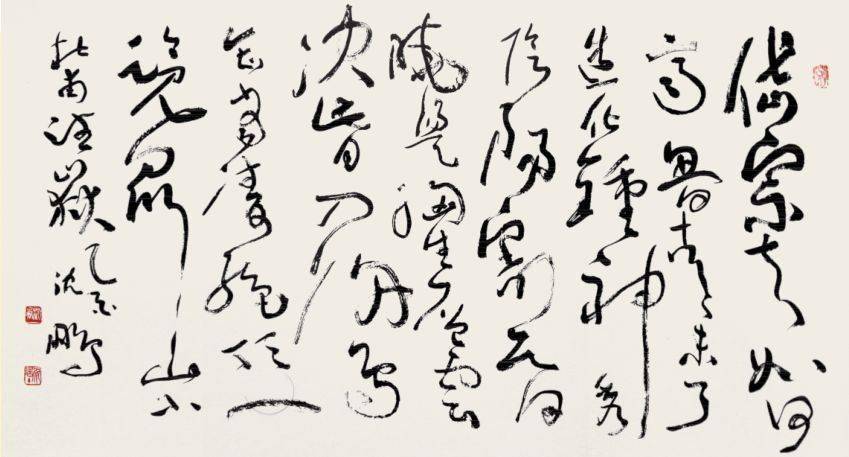 岱宗夫如何
齊魯青未了
造化鍾神秀
陰陽割昏
曉盪胸生層雲
決眥入歸鳥
會當凌絕頂一
覽眾山小
杜甫望嶽乙酉沈鵬